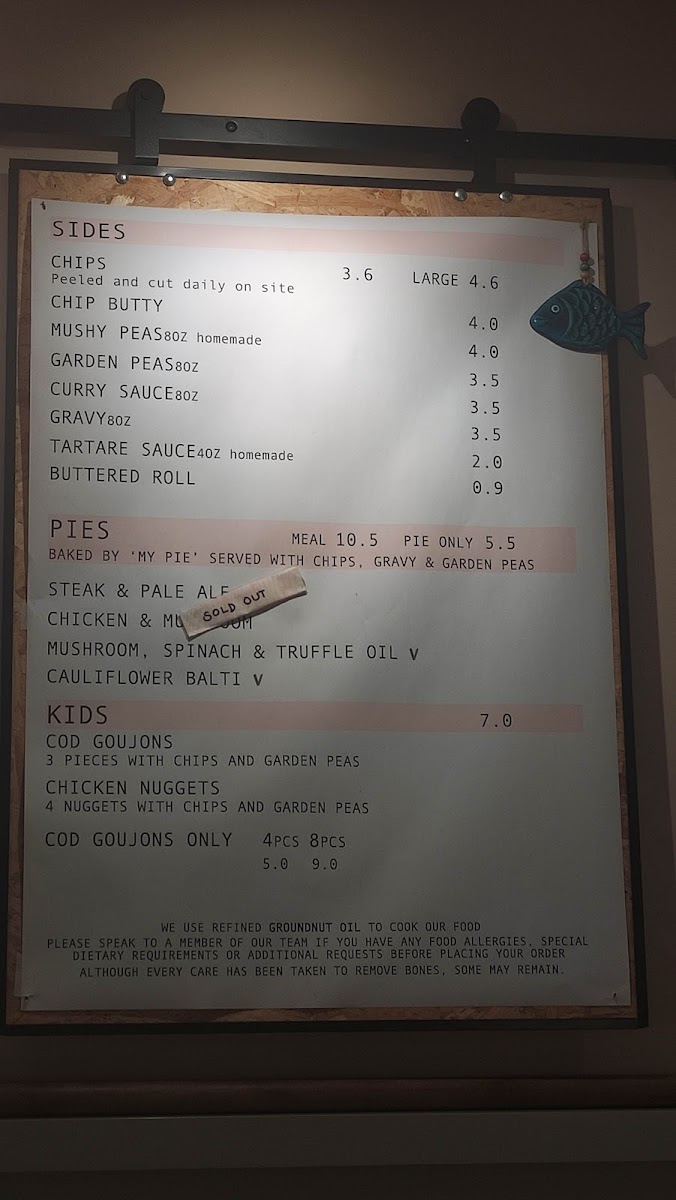 SIDES
CHIPS 3.6 LARGE 4.6
Peeled and cut daily on site
CHIP BUTTY 4.0
MUSHY PEAS8OZ homemade 4.0
GARDEN PEAS8OZ 3.5
CURRY SAUCE8OZ 3.5
GRAVY8OZ 3.5
TARTARE SAUCE4OZ homemade 2.0
BUTTERED ROLL 0.9
PIES MEAL 10.5 PIE ONLY 5.5
BAKED BY 'MY PIE' SERVED WITH CHIPS, GRAVY & GARDEN PEAS
STEAK & PALE ALE
SOLD OUT
CHICKEN & MUSHROOM
MUSHROOM, SPINACH & TRUFFLE OIL V
CAULIFLOWER BALTI V
KIDS 7.0
COD GOUJONS
3 PIECES WITH CHIPS AND GARDEN PEAS
CHICKEN NUGGETS
4 NUGGETS WITH CHIPS AND GARDEN PEAS
COD GOUJONS ONLY 4PCS 8PCS
5.0 9.0
WE USE REFINED GROUNDNUT OIL TO COOK OUR FOOD
PLEASE SPEAK TO A MEMBER OF OUR TEAM IF YOU HAVE ANY FOOD ALLERGIES, SPECIAL
DIETARY REQUIREMENTS OR ADDITIONAL REQUESTS BEFORE PLACING YOUR ORDER
ALTHOUGH EVERY CARE HAS BEEN TAKEN TO REMOVE BONES, SOME MAY REMAIN.